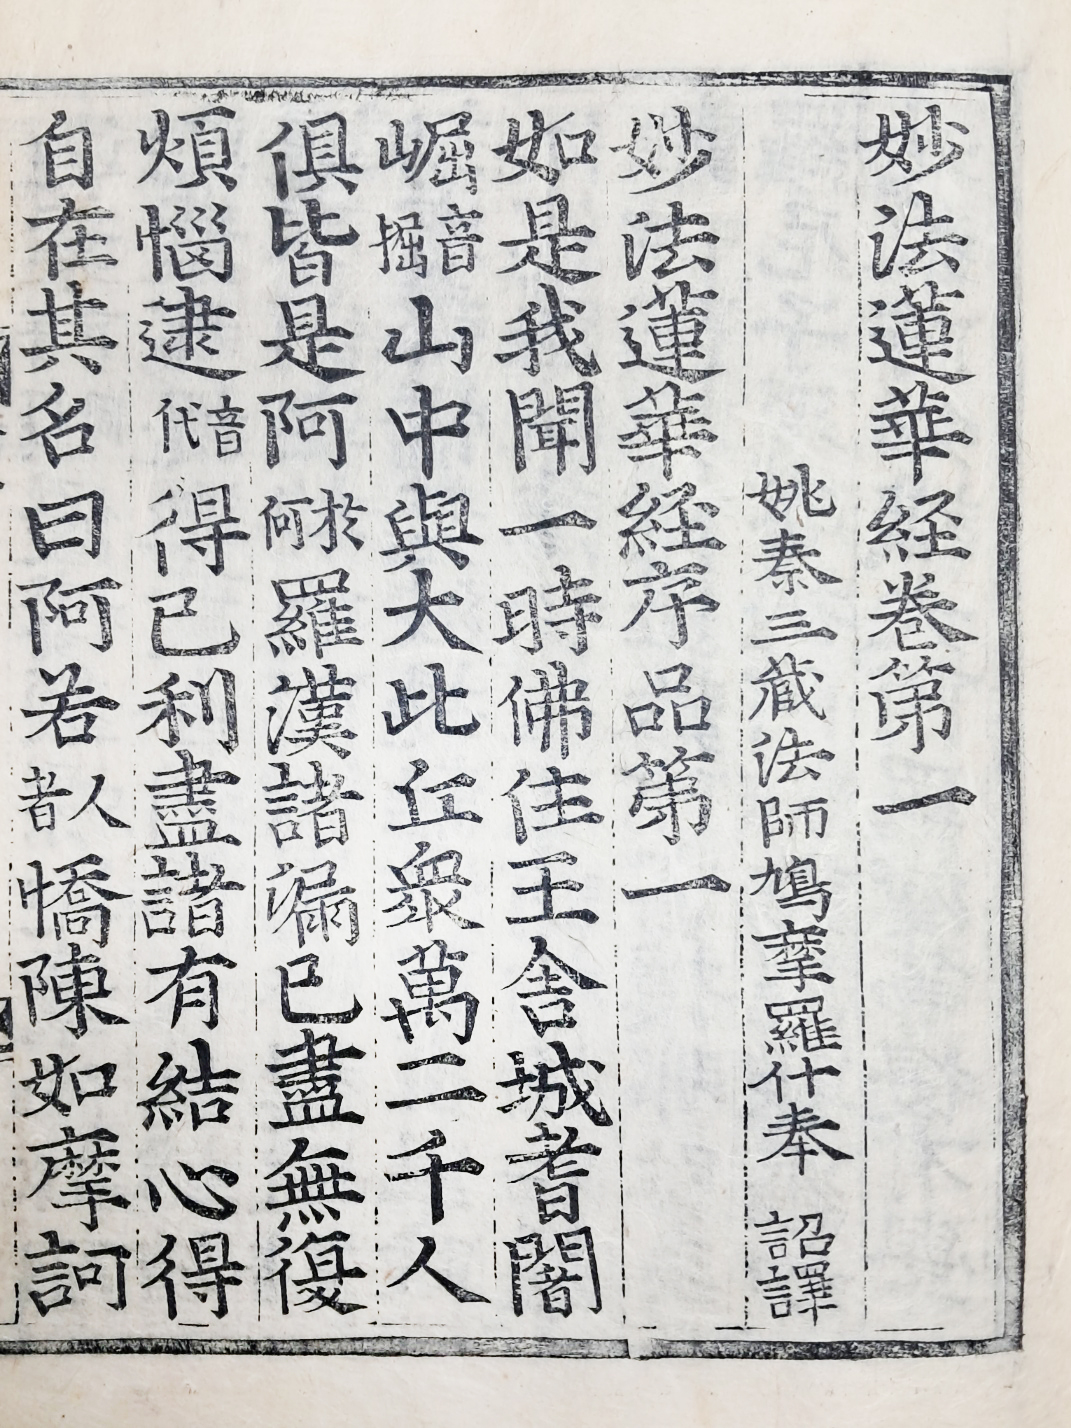 妙法蓮華経卷第一
姚秦三藏法師鳩摩羅什奉 詔譯
妙法蓮華経序品第一
如是我聞一時佛住王舍城耆闍
崛音掘山中與大比丘衆萬二千人
俱皆是阿於何羅漢諸漏已盡無復
煩惱逮音代得已利盡諸有結心得
自在其名曰阿若人者憍陳如摩訶